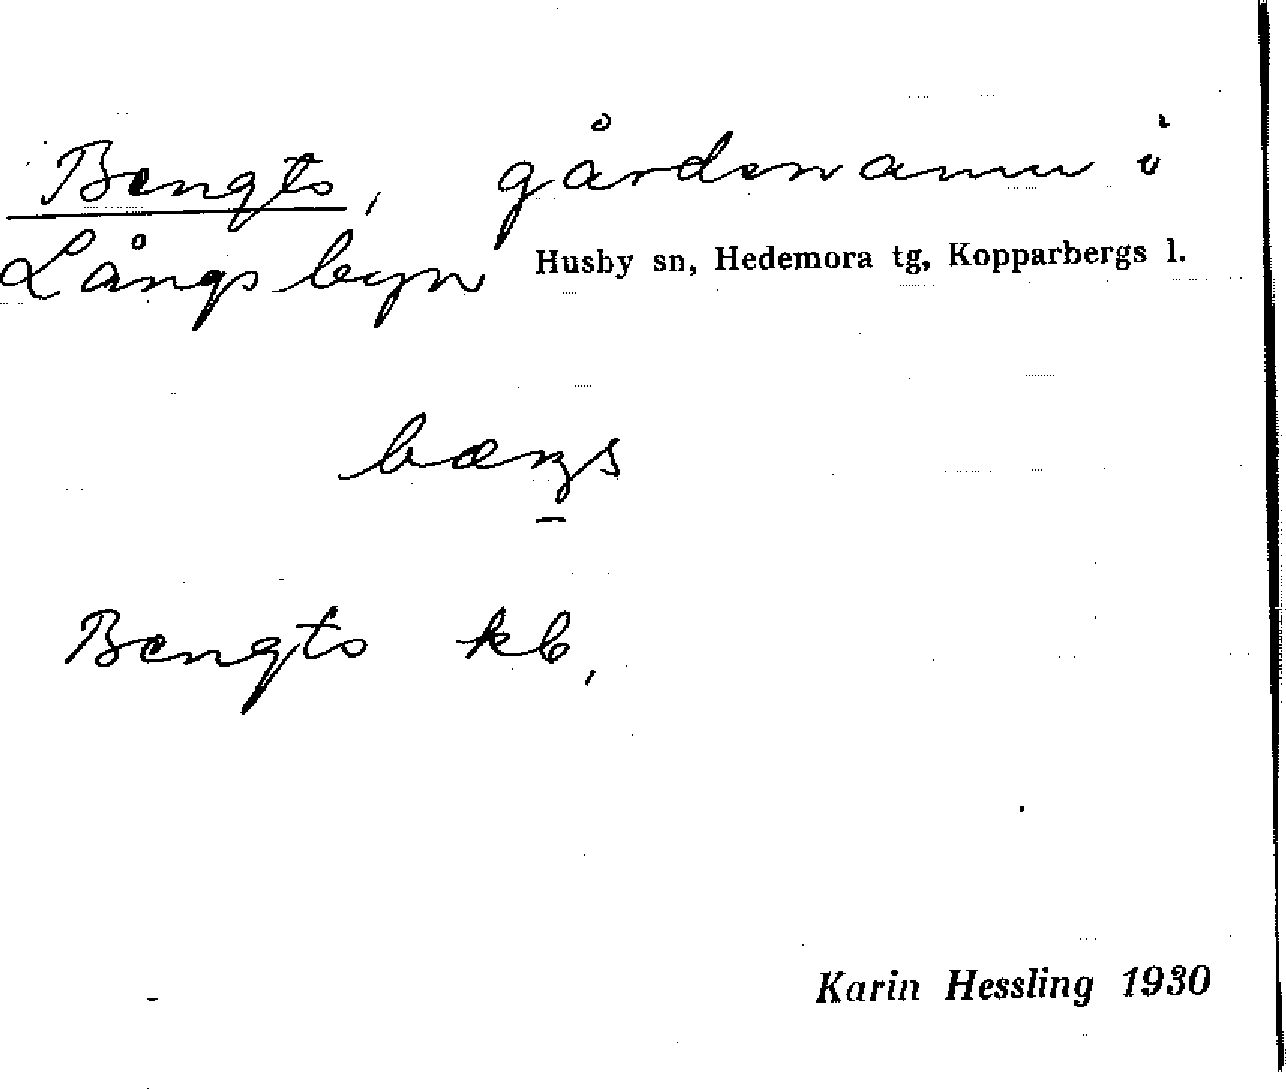 Bengts, gårdsnamn i
Långsbyn Husby sn, Hedemora tg, Kopparbergs l.
bæŋs
Bengts kb,
Karin Hessling 1930